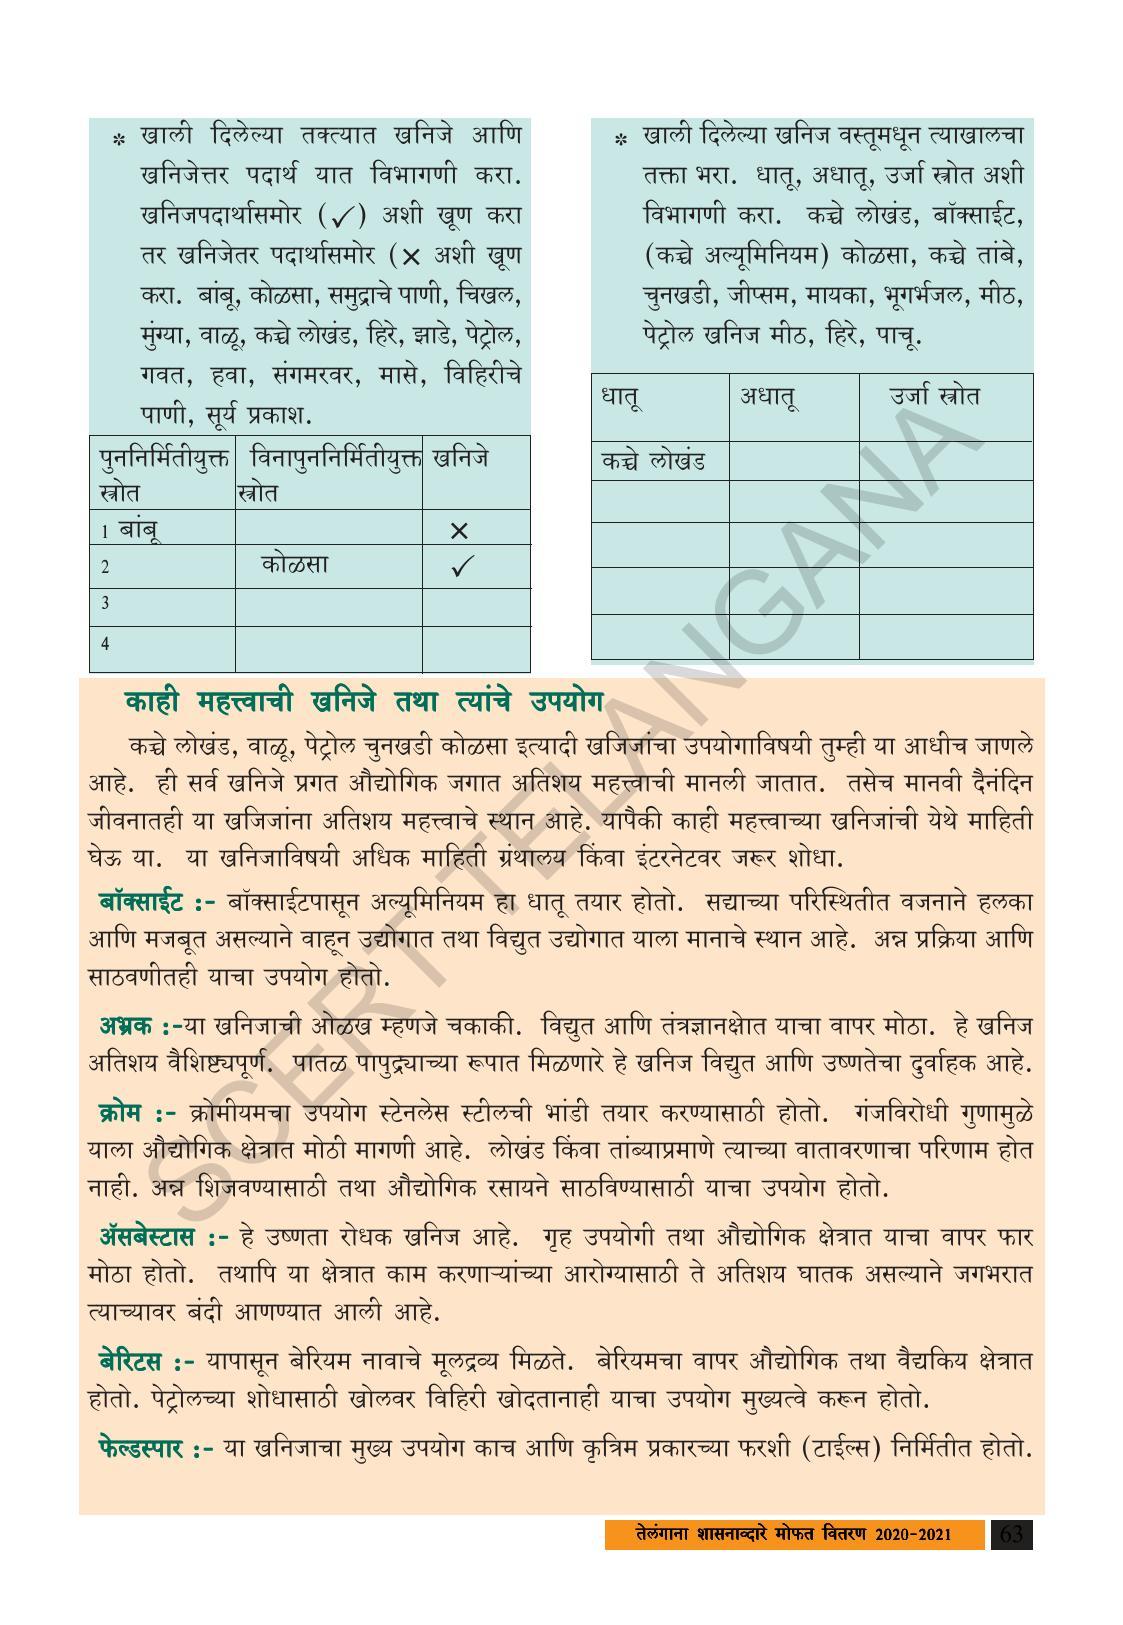 * खाली दिलेल्या तक्त्यात खनिजे आणि
खनिजेत्तर पदार्थ यात विभागणी करा.
खनिजपदार्थासमोर (✓) अशी खूण करा
तर खनिजेतर पदार्थासमोर (× अशी खूण
करा. बांबू, कोळसा, समुद्राचे पाणी, चिखल,
मुंग्या, वाळू, कच्चे लोखंड, हिरे, झाडे, पेट्रोल,
गवत, हवा, संगमरवर, मासे, विहिरीचे
पाणी, सूर्य प्रकाश.
पुननिर्मितीयुक्त विनापुननिर्मितीयुक्त खनिजे
स्त्रोत स्त्रोत
1 बांबू ×
2 कोळसा ✓
3
4
* खाली दिलेल्या खनिज वस्तूमधून त्याखालचा
तक्ता भरा. धातू, अधातू, उर्जा स्त्रोत अशी
विभागणी करा. कच्चे लोखंड, बॉक्साईट,
(कच्चे अल्यूमिनियम) कोळसा, कच्चे तांबे,
चुनखडी, जीप्सम, मायका, भूगर्भजल, मीठ,
पेट्रोल खनिज मीठ, हिरे, पाचू.
धातू अधातू उर्जा स्त्रोत
कच्चे लोखंड
काही महत्त्वाची खनिजे तथा त्यांचे उपयोग
कच्चे लोखंड, वाळू, पेट्रोल चुनखडी कोळसा इत्यादी खजिजांचा उपयोगाविषयी तुम्ही या आधीच जाणले
आहे. ही सर्व खनिजे प्रगत औद्योगिक जगात अतिशय महत्त्वाची मानली जातात. तसेच मानवी दैनंदिन
जीवनातही या खजिजांना अतिशय महत्त्वाचे स्थान आहे. यापैकी काही महत्त्वाच्या खनिजांची येथे माहिती
घेऊ या. या खनिजाविषयी अधिक माहिती ग्रंथालय किंवा इंटरनेटवर जरूर शोधा.
बॉक्साईट :- बॉक्साईटपासून अल्यूमिनियम हा धातू तयार होतो. सद्याच्या परिस्थितीत वजनाने हलका
आणि मजबूत असल्याने वाहून उद्योगात तथा विद्युत उद्योगात याला मानाचे स्थान आहे. अन्न प्रक्रिया आणि
साठवणीतही याचा उपयोग होतो.
अभ्रक :-या खनिजाची ओळख म्हणजे चकाकी. विद्युत आणि तंत्रज्ञानक्षेात याचा वापर मोठा. हे खनिज
अतिशय वैशिष्ट्यपूर्ण. पातळ पापुद्र्याच्या रूपात मिळणारे हे खनिज विद्युत आणि उष्णतेचा दुर्वाहक आहे.
क्रोम :- क्रोमीयमचा उपयोग स्टेनलेस स्टीलची भांडी तयार करण्यासाठी होतो. गंजविरोधी गुणामुळे
याला औद्योगिक क्षेत्रात मोठी मागणी आहे. लोखंड किंवा तांब्याप्रमाणे त्याच्या वातावरणाचा परिणाम होत
नाही. अन्न शिजवण्यासाठी तथा औद्योगिक रसायने साठविण्यासाठी याचा उपयोग होतो.
ॲसबेस्टास :- हे उष्णता रोधक खनिज आहे. गृह उपयोगी तथा औद्योगिक क्षेत्रात याचा वापर फार
मोठा होतो. तथापि या क्षेत्रात काम करणाऱ्यांच्या आरोग्यासाठी ते अतिशय घातक असल्याने जगभरात
त्याच्यावर बंदी आणण्यात आली आहे.
बेरिटस :- यापासून बेरियम नावाचे मूलद्रव्य मिळते. बेरियमचा वापर औद्योगिक तथा वैद्यकिय क्षेत्रात
होतो. पेट्रोलच्या शोधासाठी खोलवर विहिरी खोदतानाही याचा उपयोग मुख्यत्वे करून होतो.
फेल्डस्पार :- या खनिजाचा मुख्य उपयोग काच आणि कृत्रिम प्रकारच्या फरशी (टाईल्स) निर्मितीत होतो.
SCERT TELANGANA
तेलंगाना शासनाव्दारे मोफत वितरण 2020-2021 63